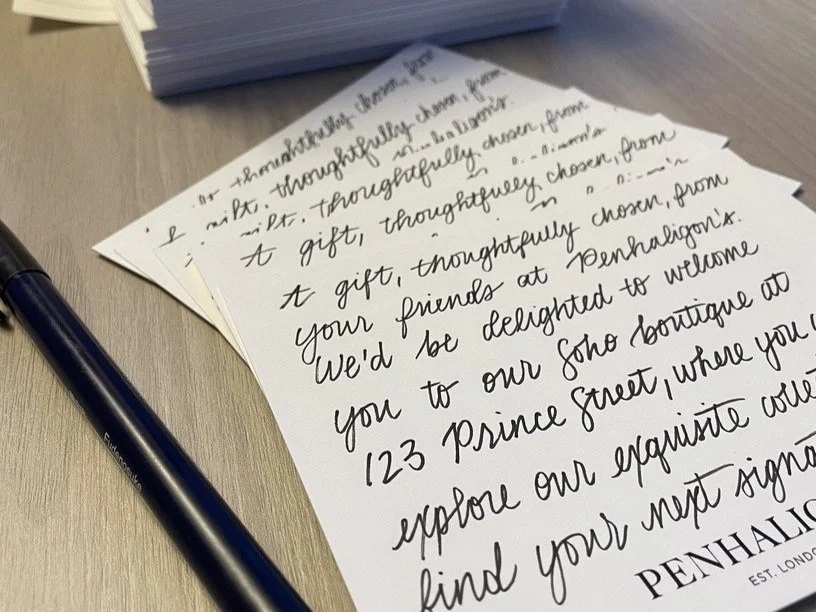 thoughtfully chosen, from
thoughtfully chosen, from
thoughtfully chosen, from
A gift, thoughtfully chosen, from
A gift, thoughtfully chosen, from
your friends at Penhaligon's.
We'd be delighted to welcome
you to our Soho boutique at
123 Prince Street, where you
explore our exquisite colle
find your next signa
PENHALIG
EST. LONDO
Fudenosuke